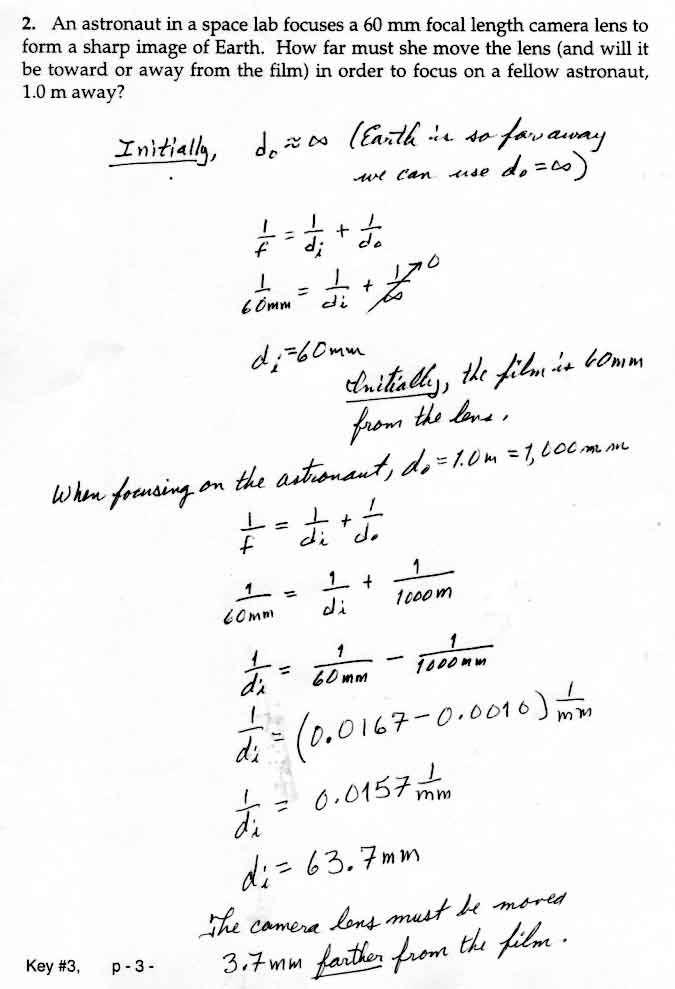 2. An astronaut in a space lab focuses a 60 mm focal length camera lens to
form a sharp image of Earth. How far must she move the lens (and will it
be toward or away from the film) in order to focus on a fellow astronaut,
1.0 m away?
Initially, d₀ ≈ ∞ (Earth is so far away
we can use d₀ = ∞)
1/f = 1/dᵢ + 1/d₀
1/60mm = 1/dᵢ + 1/∞ → 0
dᵢ = 60mm
Initially, the film is 60mm
from the lens.
When focusing on the astronaut, d₀ = 1.0m = 1,000mm
1/f = 1/dᵢ + 1/d₀
1/60mm = 1/dᵢ + 1/1000m
1/dᵢ = 1/60mm - 1/1000mm
1/dᵢ = (0.0167 - 0.0010) 1/mm
1/dᵢ = 0.0157 1/mm
dᵢ = 63.7mm
The camera lens must be moved
3.7mm farther from the film.
Key #3, p - 3 -